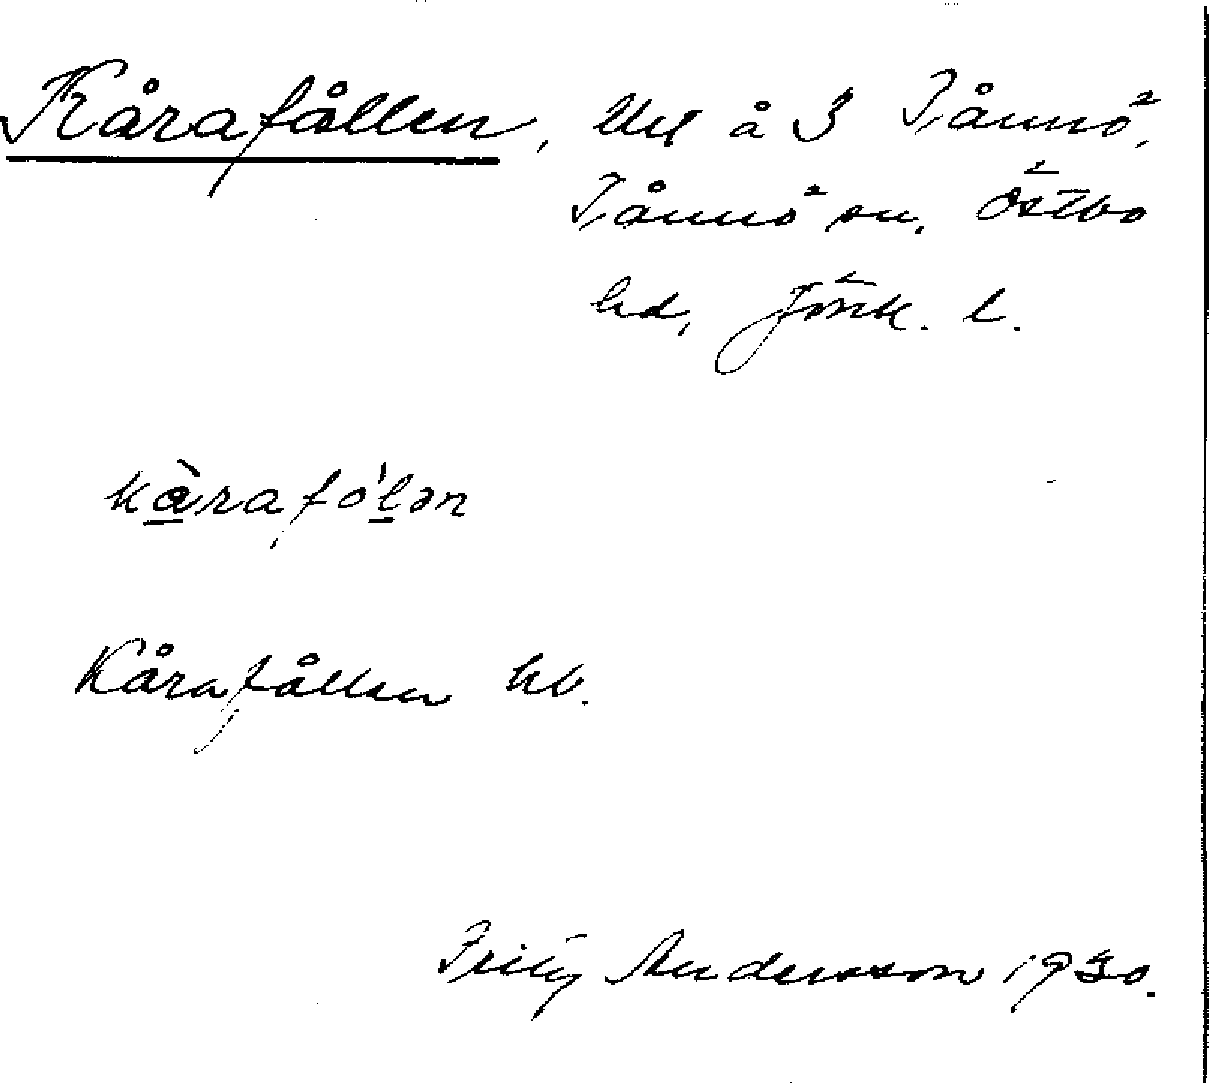 Kårafållen, Utj å 3 Tånnö,
Tånnö sn. Östbo
hd, Jönk. l.
kàrafó'lən
Kårafållen hb.
Fritz Andersson 1930.